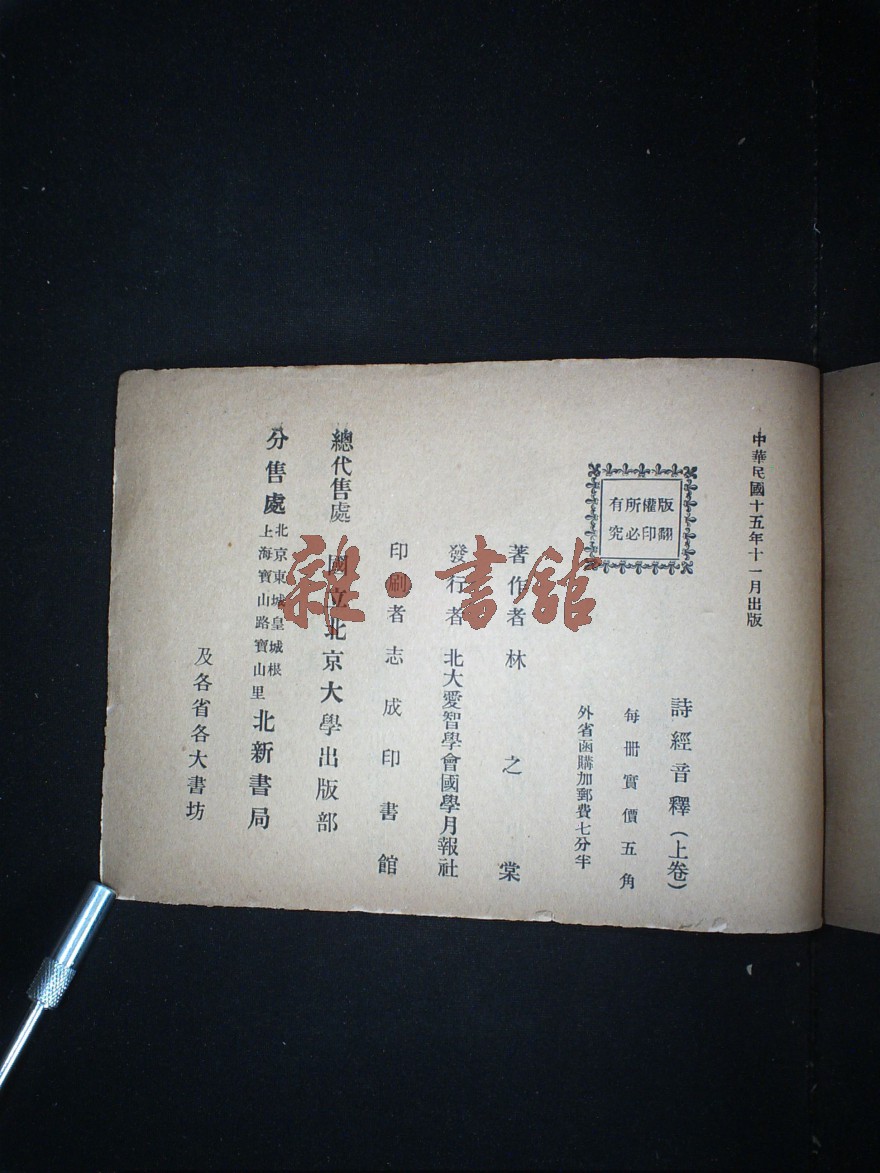 中華民國十五年十一月出版
版權所有
翻印必究
詩經音釋(上卷)
每冊實價五角
外省函購加郵費七分半
著作者 林之棠
發行者 北大愛智學會國學月報社
印刷者 志成印書館
總代售處 國立北京大學出版部
分售處 北京東城皇城根 上海寶山路寶山里 北新書局
及各省各大書坊
雜·書館